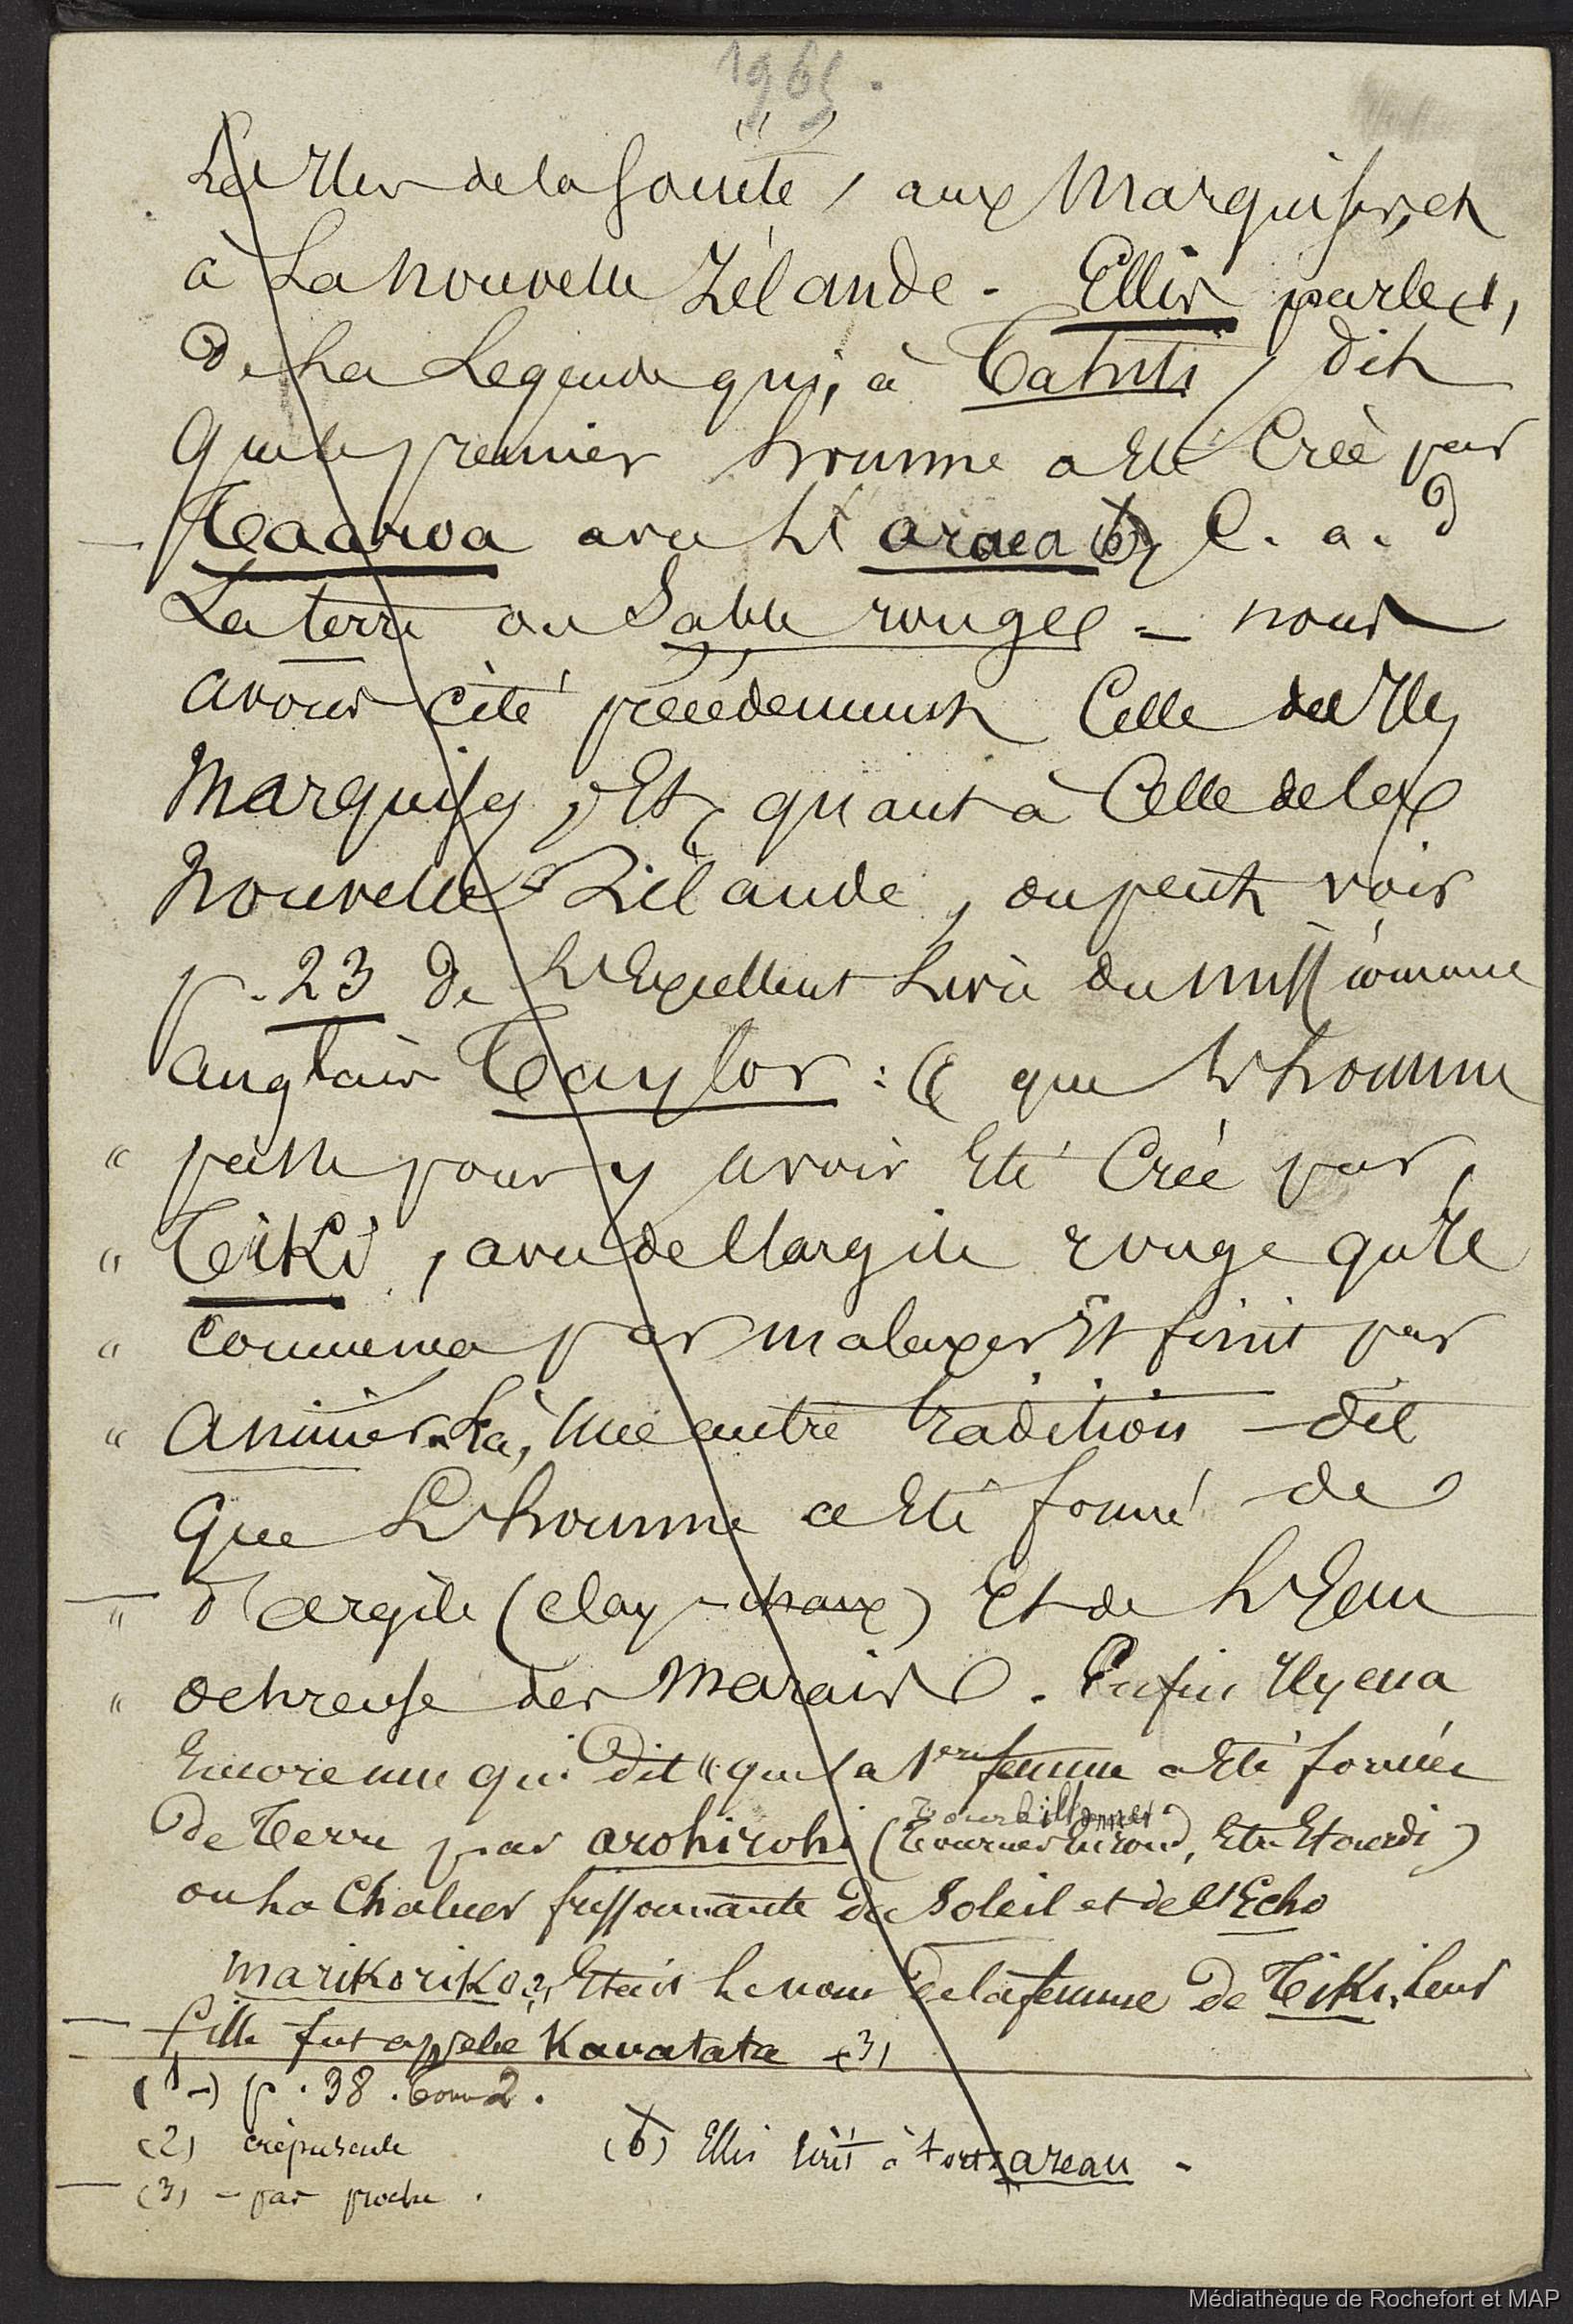 1965.
Les Iles de la Société, aux Marquises, et
à la Nouvelle Zélande - Ellis parle (1)
de la Légende qui, à Tahiti, dit
que le premier homme a été Créé par
Taaroa avec l'araea (b) C. a. d
La terre ou Sable rouge - nous
avons cité précédemment Celle des Iles
Marquises, Et, quant à Celle de la
Nouvelle Zélande, on peut voir
p. 23 de l'Excellent Livre du missionnaire
anglais Taylor : " que l'homme
" passe pour y avoir Eté Créé par
" Tiki, avec de l'argile rouge qu'Il
" commença par malaxer Et finit par
" animer. Là, Une autre tradition dit
que L'homme a Eté formé de
" d'argile (clay - chaux) Et de l'Eau
" ochreuse des Marais. Enfin Il y en a
Encore une qui dit " que la 1ere femme a Eté formée
tourbillonner
de Terre par arohirohi (tourner En rond, Etre Etourdi)
ou La Chaleur frissonnante du Soleil et de l'Echo
marikoriko 2, Etait le nom de la femme de Tiki, leur
fille fut appelée Kauatata (3)
(1-) p. 38. tom 2.
(2) crépuscule
(b) Ellis Ecrit à tort : areau -
(3) - par proche.
Médiathèque de Rochefort et MAP